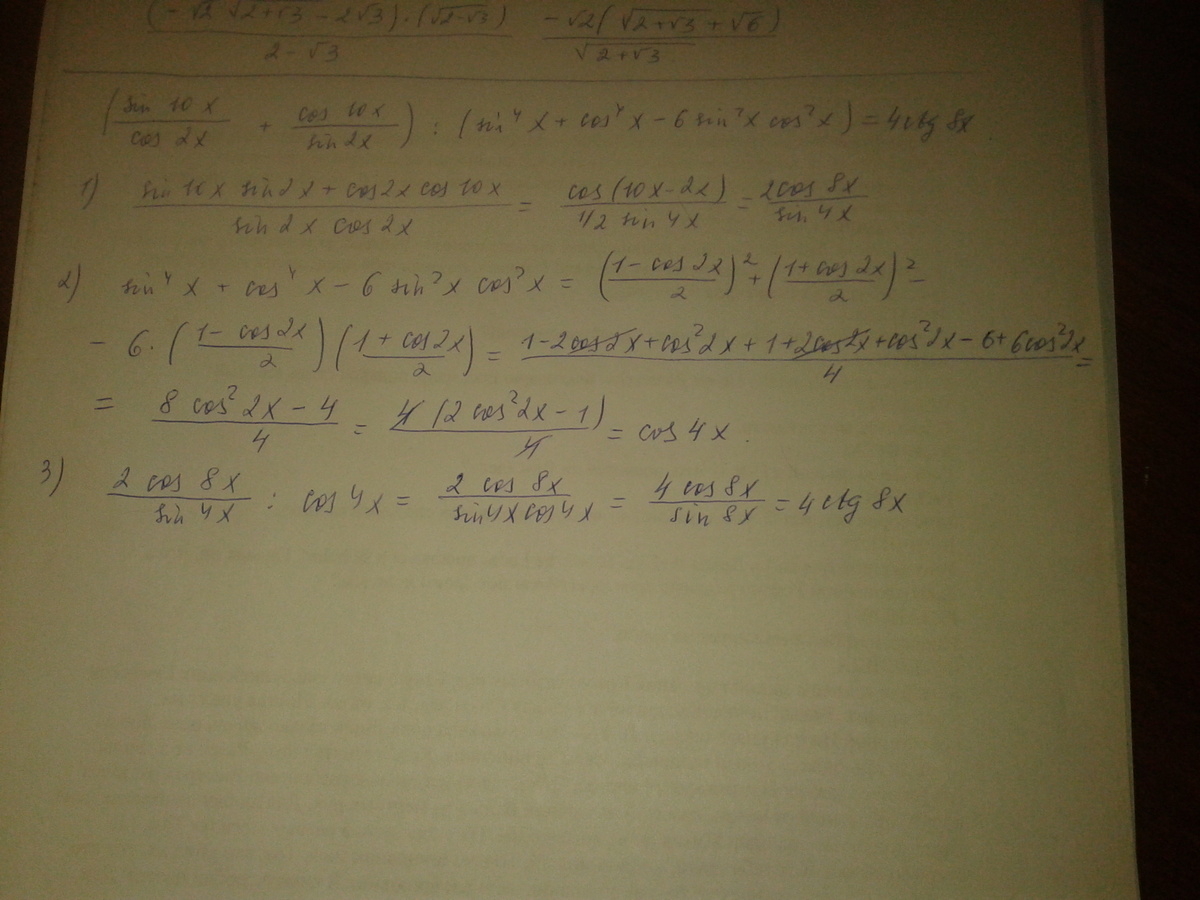 (-√2 √(2+√3) - 2√3)·(√(2-√3)) / 2-√3    -√2(√(2+√3) + √6) / √(2+√3)
(sin 10x / cos 2x + cos 10x / sin 2x) : (sin⁴x + cos⁴x - 6 sin²x cos²x) = 4 ctg 8x
1) sin 10x sin 2x + cos 2x cos 10x / sin 2x cos 2x = cos(10x-2x) / 1/2 sin 4x = 2cos 8x / sin 4x
2) sin⁴x + cos⁴x - 6 sin²x cos²x = (1-cos 2x / 2)² + (1+cos 2x / 2)² -
- 6·(1-cos 2x / 2)(1+cos 2x / 2) = 1-2cos 2x+cos²2x+1+2cos 2x+cos²2x-6+6cos²2x / 4 =
= 8 cos²2x - 4 / 4 = 4(2cos²2x - 1) / 4 = cos 4x.
3) 2 cos 8x / sin 4x : cos 4x = 2 cos 8x / sin 4x cos 4x = 4 cos 8x / sin 8x = 4 ctg 8x